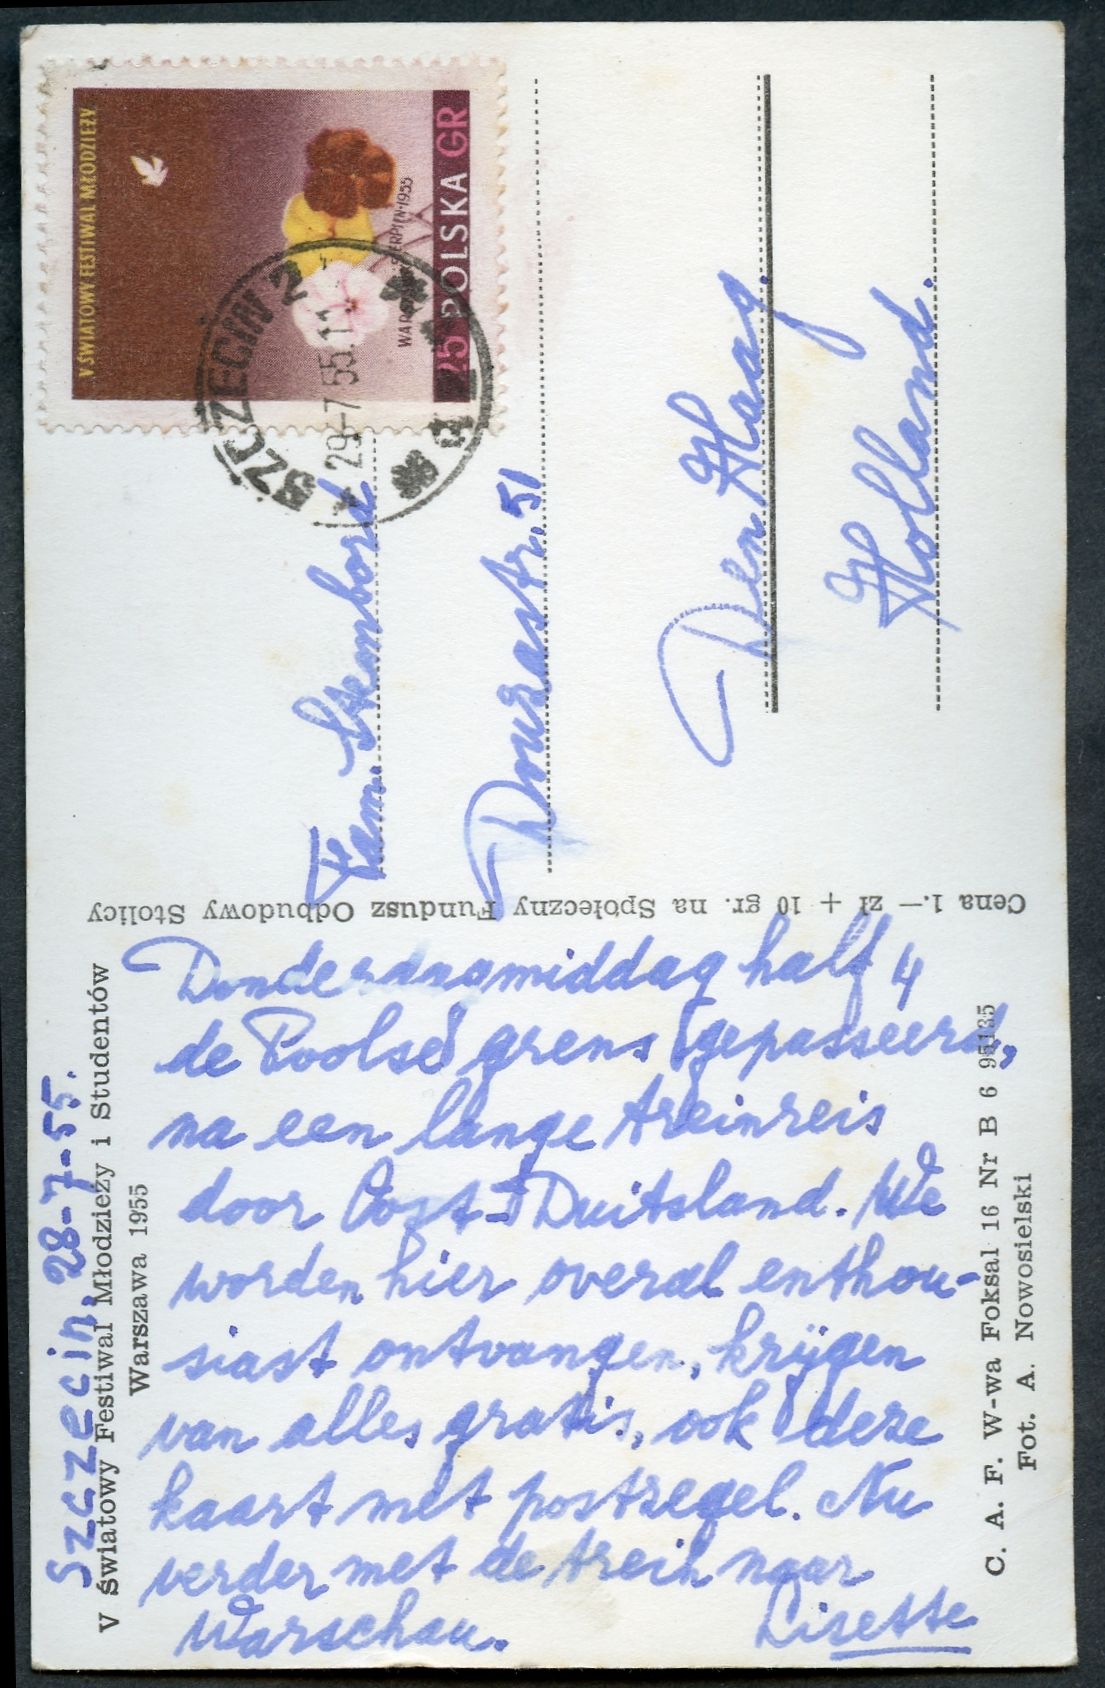 Szczecin, 28-7-55.
V Światowy Festiwal Młodzieży i Studentów
Warszawa 1955
Donderdagmiddag half 4
de Poolse grens gepasseerd,
na een lange treinreis
door Oost-Duitsland. We
worden hier overal enthou-
siast ontvangen, krijgen
van alles gratis, ook deze
kaart met postzegel. Nu
verder met de trein naar
Warschau. Lisette
C. A. F. W-wa Foksal 16 Nr B 6 95135
Fot. A. Nowosielski
Cena 1.— zł + 10 gr. na Społeczny Fundusz Odbudowy Stolicy
V ŚWIATOWY FESTIWAL MŁODZIEŻY
25 POLSKA GR
SZCZECIN 2
29-7 55.11
Fam.
Douzastr. 51
Den Haag.
Holland.